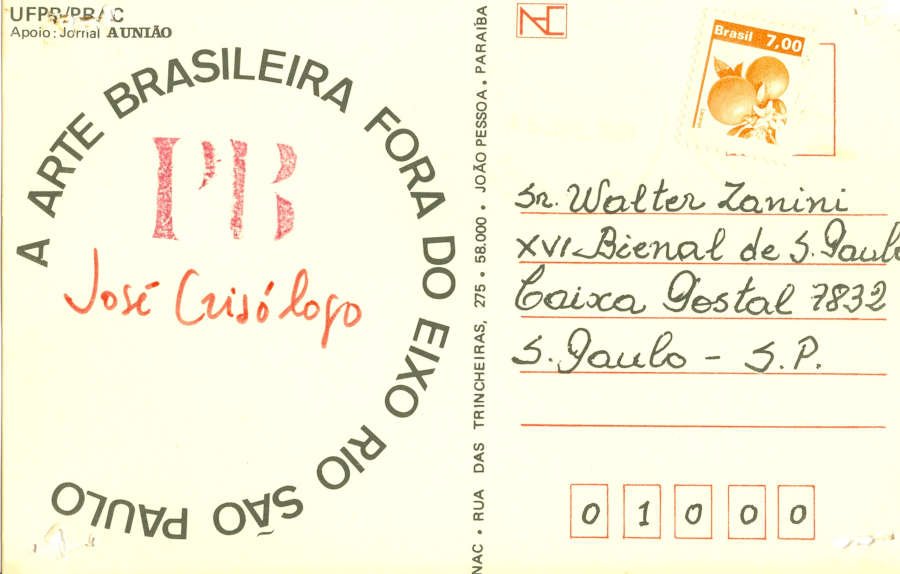 UFPB/PRAC
Apoio: Jornal A UNIÃO
A ARTE BRASILEIRA FORA DO EIXO RIO SÃO PAULO
PB
José Crisólogo
NAC • RUA DAS TRINCHEIRAS, 275 • 58.000 • JOÃO PESSOA • PARAÍBA
NAC
Brasil 7,00
Sr. Walter Zanini
XVI Bienal de S. Paulo
Caixa Postal 7832
S. Paulo - S.P.
0 1 0 0 0